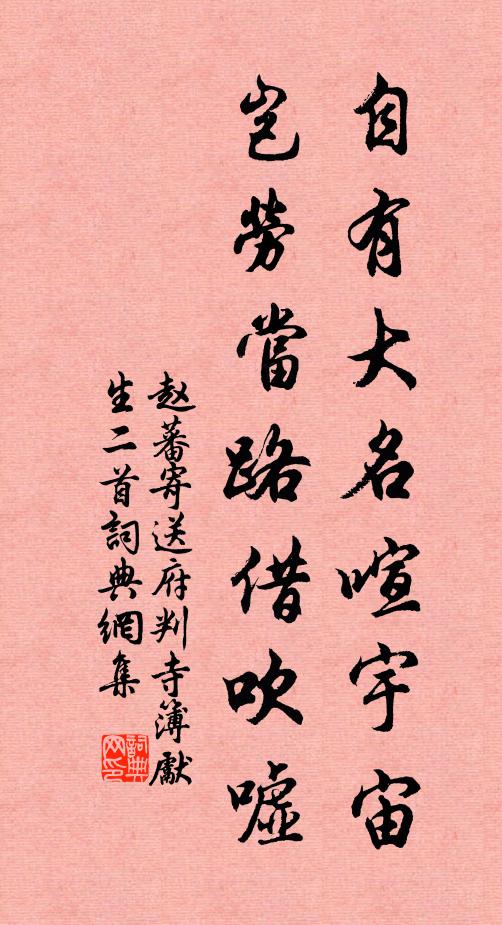 自有大名喧宇宙
岂勞當路借吹噓
赵蕃寄送府判寺簿獻
生二首詞典網集
詞典
网印